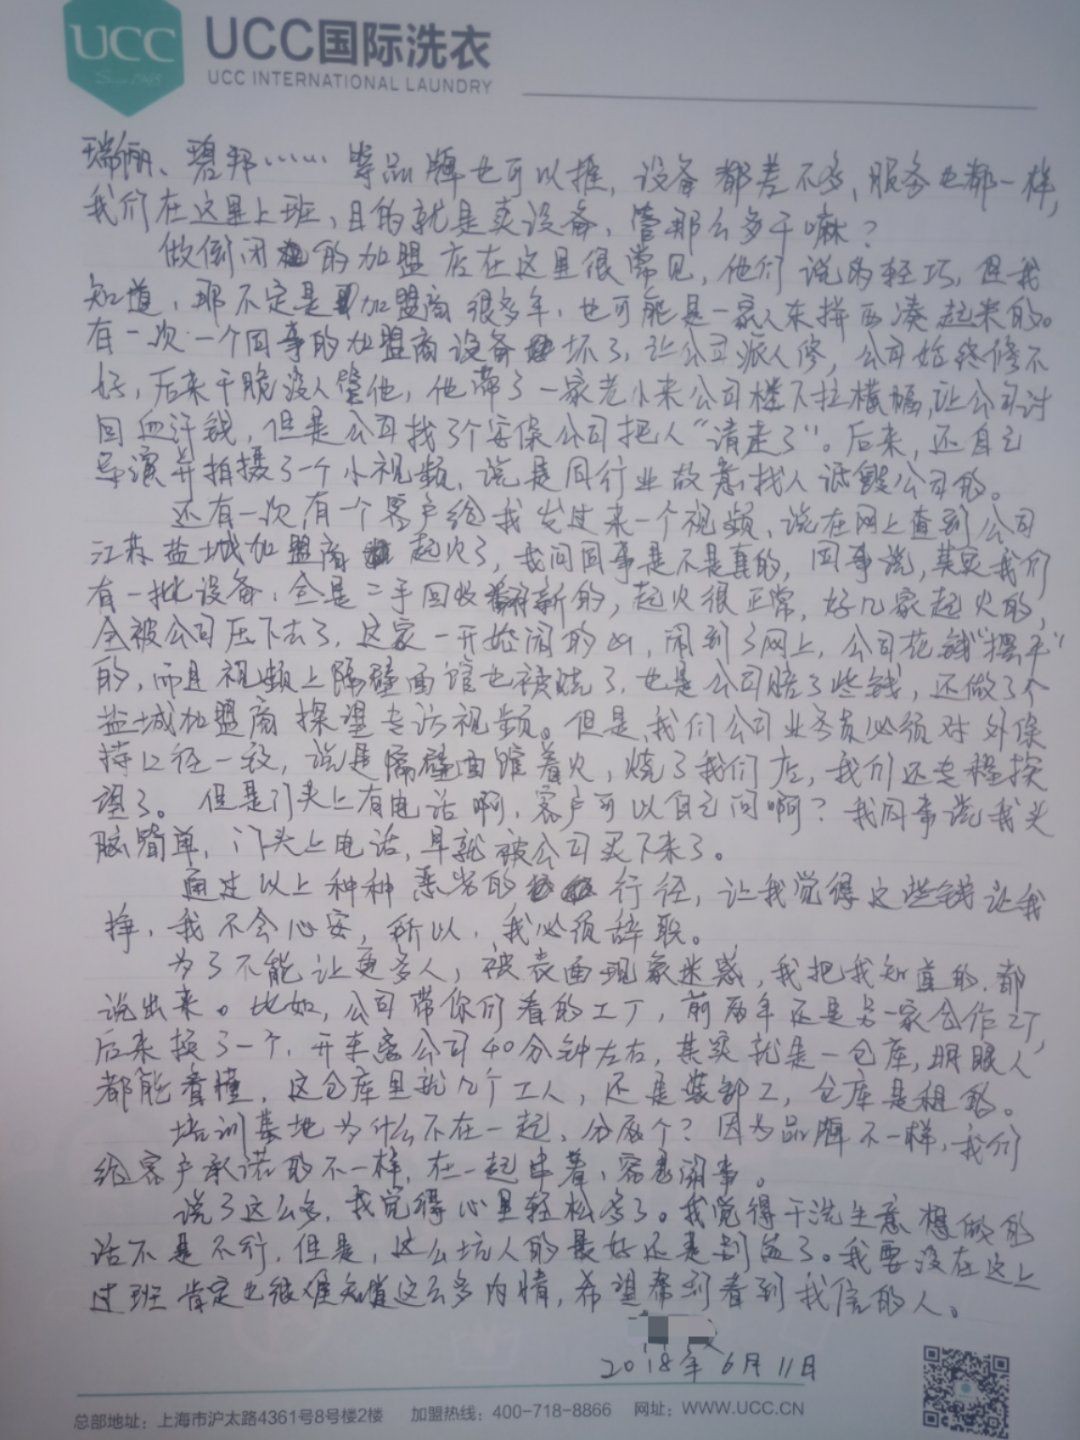 UCC
Since 1965
UCC国际洗衣
UCC INTERNATIONAL LAUNDRY
瑞俪、碧邦……等品牌也可以推，设备都差不多，服务也都一样，
我们在这里上班，目的就是卖设备，管那么多干嘛？
做倒闭的加盟店在这里很常见，他们说的轻巧，但我
知道，那不定是加盟商很多年，也可能是一家人东拼西凑起来的。
有一次一个回事的加盟商设备坏了，让公司派人修，公司始终修不
好，后来干脆没人管他，他带了一家老小来公司楼下拉横幅，让公司讨
回血汗钱，但是公司找了个安保公司把人“请走了”。后来，还自己
导演并拍摄了一个小视频，说是同行业故意找人诋毁公司的。
还有一次有一个客户给我发过来一个视频，说在网上查到公司
江苏盐城加盟商起火了，我问同事是不是真的，同事说，其实我们
有一批设备，全是二手回收翻新的，起火很正常，好几家起火的，
全被公司压下去了，这家一开始闹的凶，闹到了网上，公司花钱“摆平”
的，而且视频上隔壁面馆也被烧了，也是公司赔了些钱，还做了个
盐城加盟商探望专访视频。但是，我们公司业务员必须对外保
持口径一致，说是隔壁面馆着火，烧了我们店，我们还专程探
望了。但是门头上有电话啊，客户可以自己问啊？我同事说我头
脑简单，门头上电话，早就被公司买下来了。
通过以上种种恶劣的行径，让我觉得这些钱让我
挣，我不会心安，所以，我必须辞职。
为了不能让更多人，被表面现象迷惑，我把我知道的，都
说出来。比如，公司带你们看的工厂，前两年还是另一家合作工厂，
后来换了一个，开车离公司40分钟左右，其实就是一仓库，明眼人
都能看懂，这仓库里就几个工人，还是装卸工，仓库是租的。
培训基地为什么不在一起，分几个？因为品牌不一样，我们
给客户承诺的不一样，在一起串着，容易闹事。
说了这么多，我觉得心里轻松多了。我觉得干洗生意想做的
话不是不行，但是，这么坑人的最好还是别做了。我要没在这上
过班肯定也很难知道这么多内情，希望帮到看到我信的人。
2018年6月11日
总部地址：上海市沪太路4361号8号楼2楼 加盟热线：400-718-8866 网址：WWW.UCC.CN